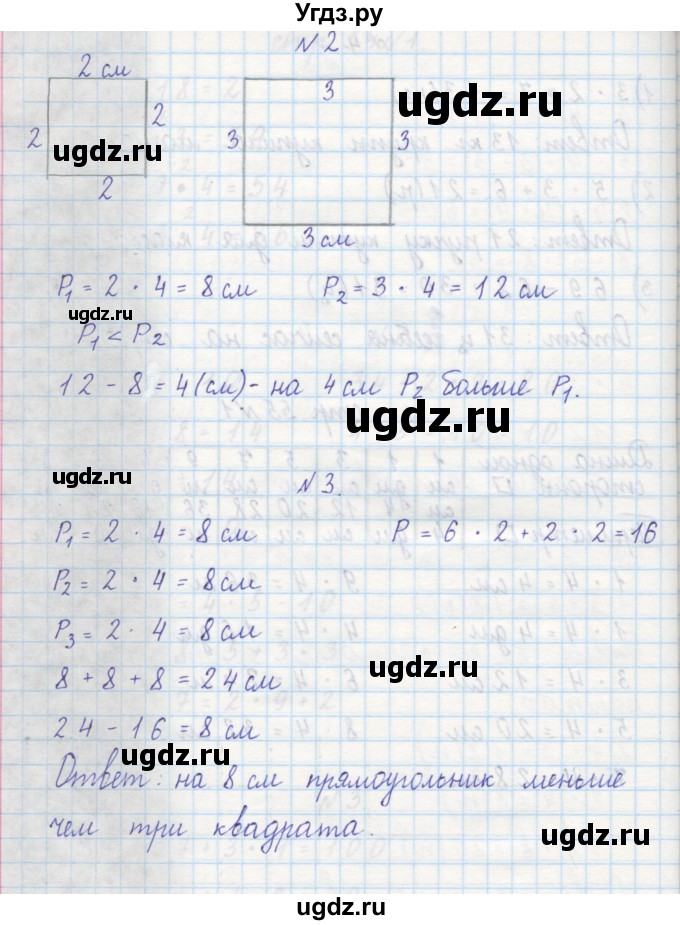 Угдз.ру
N 2
2 см
2
2
2
3
3
3
3 см
ugdz.ru
ugdz.ru
ugdz.ru
P₁ = 2 · 4 = 8 см P₂ = 3 · 4 = 12 см
ugdz.ru
P₁ < P₂
12 - 8 = 4 (см) - на 4 см P₂ больше P₁.
ugdz.ru
ugdz.ru
N 3.
P₁ = 2 · 4 = 8 см P = 6 · 2 + 2 · 2 = 16
P₂ = 2 · 4 = 8 см
P₃ = 2 · 4 = 8 см
ugdz.ru
8 + 8 + 8 = 24 см
24 - 16 = 8 см
ugdz.ru
Ответ: на 8 см прямоугольник меньше
чем три квадрата.
ugdz.ru
ugdz.ru
ugdz.ru